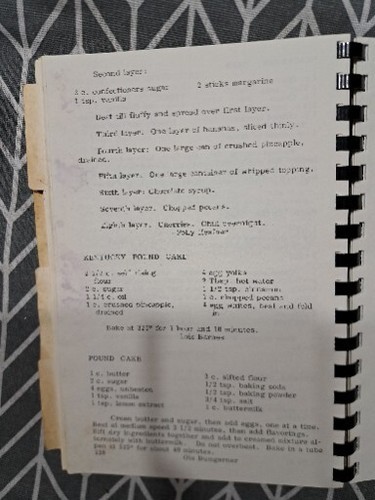 Second layer:
2 c. confectioners sugar 2 sticks margarine
1 tsp. vanilla
Beat till fluffy and spread over first layer.
Third layer. One layer of bananas, sliced thinly.
Fourth layer: One large can of crushed pineapple,
drained.
Fifth layer. One large container of whipped topping.
Sixth layer: Chocolate syrup.
Seventh layer. Chopped pecans.
Eighth layer. Cherries. Chill overnight.
KENTUCKY POUND CAKE
2 1/2 c. self rising 4 egg yolks
flour 2 Tbsp. hot water
2 c. sugar 1 1/2 tsp. cinnamon
1 1/4 c. oil 1 c. chopped pecans
1 c. crushed pineapple, 4 egg whites, beat and fold
drained in
Bake at 325° for 1 hour and 10 minutes.
Lois
POUND CAKE
1 c. butter 3 c. sifted flour
2 c. sugar 1/2 tsp. baking soda
4 eggs, unbeaten 1/2 tsp. baking powder
1 tsp. vanilla 3/4 tsp. salt
1 tsp. lemon extract 1 c. buttermilk
Cream butter and sugar, then add eggs, one at a time.
Beat at medium speed 2 1/2 minutes, then add flavorings.
Sift dry ingredients together and add to creamed mixture al-
ternately with buttermilk. Do not overbeat. Bake in a tube
pan at 325° for about